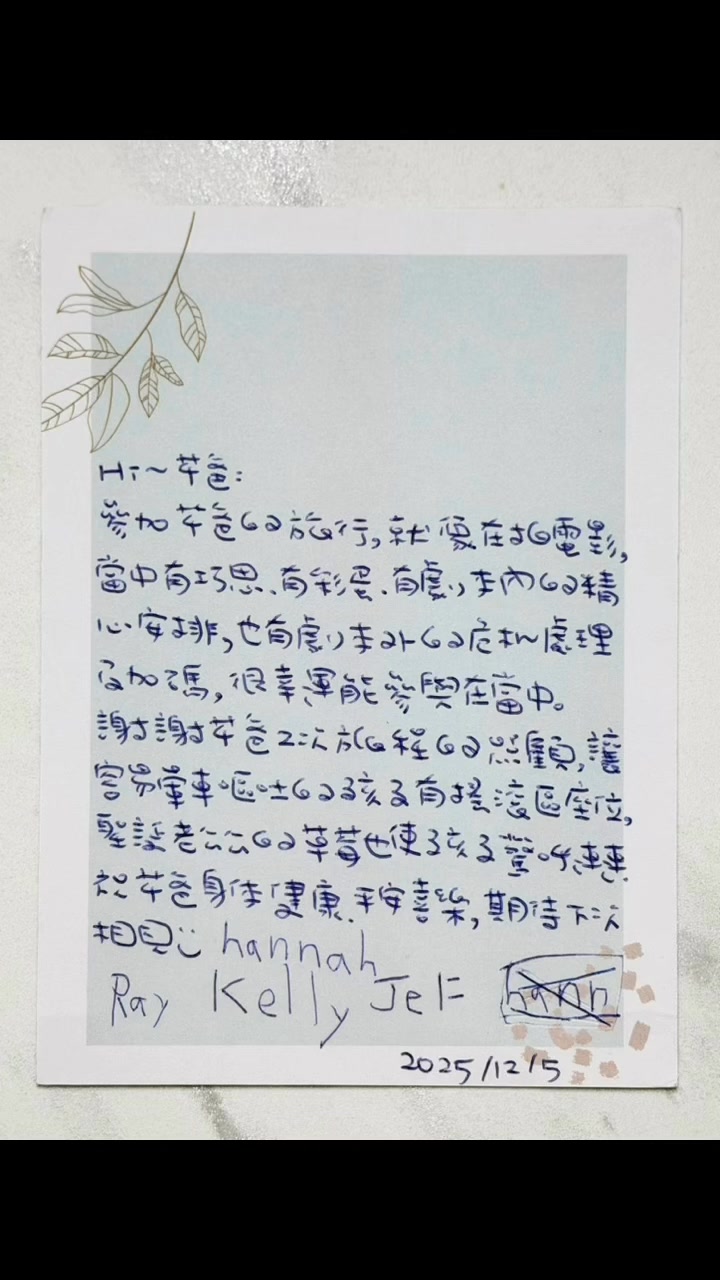 Hi~芊爸:
參加芊爸的旅行,就像在拍電影,
當中有巧思、有彩蛋、有劇本內的精
心安排,也有劇本外的危机處理
及加碼,很幸運能參與在當中。
謝謝芊爸2次旅程的照顧,讓
容易暈車嘔吐的孩子有搖滾區座位,
聖誕老公公的草莓也使孩子驚呼連連.
祝芊爸身体健康、平安喜樂,期待下次
相見 hannah
Ray Kelly Jeff
hann
2025/12/5